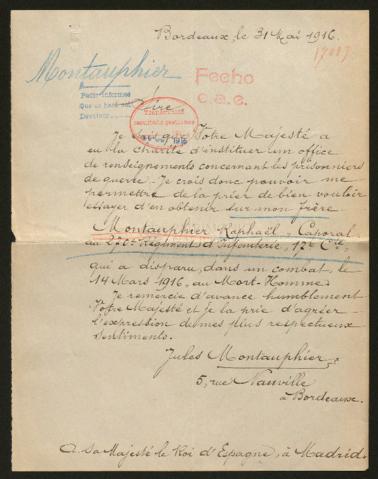 Bordeaux, le 31 Mai 1916.
17007
Montauphier
Fecho
c.a.e.
Petit informes
Sire,
Je sais que Votre Majesté a
eu la charité d'instituer un office
de renseignements concernant les prisonniers
de guerre. Je crois donc pouvoir me
permettre de la prier de bien vouloir
essayer d'en obtenir sur mon frère
Montauphier Raphaël, Caporal
au Régiment d'Infanterie, 12e Cie,
qui a disparu, dans un combat, le
14 Mars 1916, au Mort-Homme.
Je remercie d'avance humblement
Votre Majesté et je la prie d'agréer
l'expression de mes plus respectueux
sentiments.
Jules Montauphier,
5, rue Nauville
à Bordeaux.
A Sa Majesté le Roi d'Espagne, à Madrid.